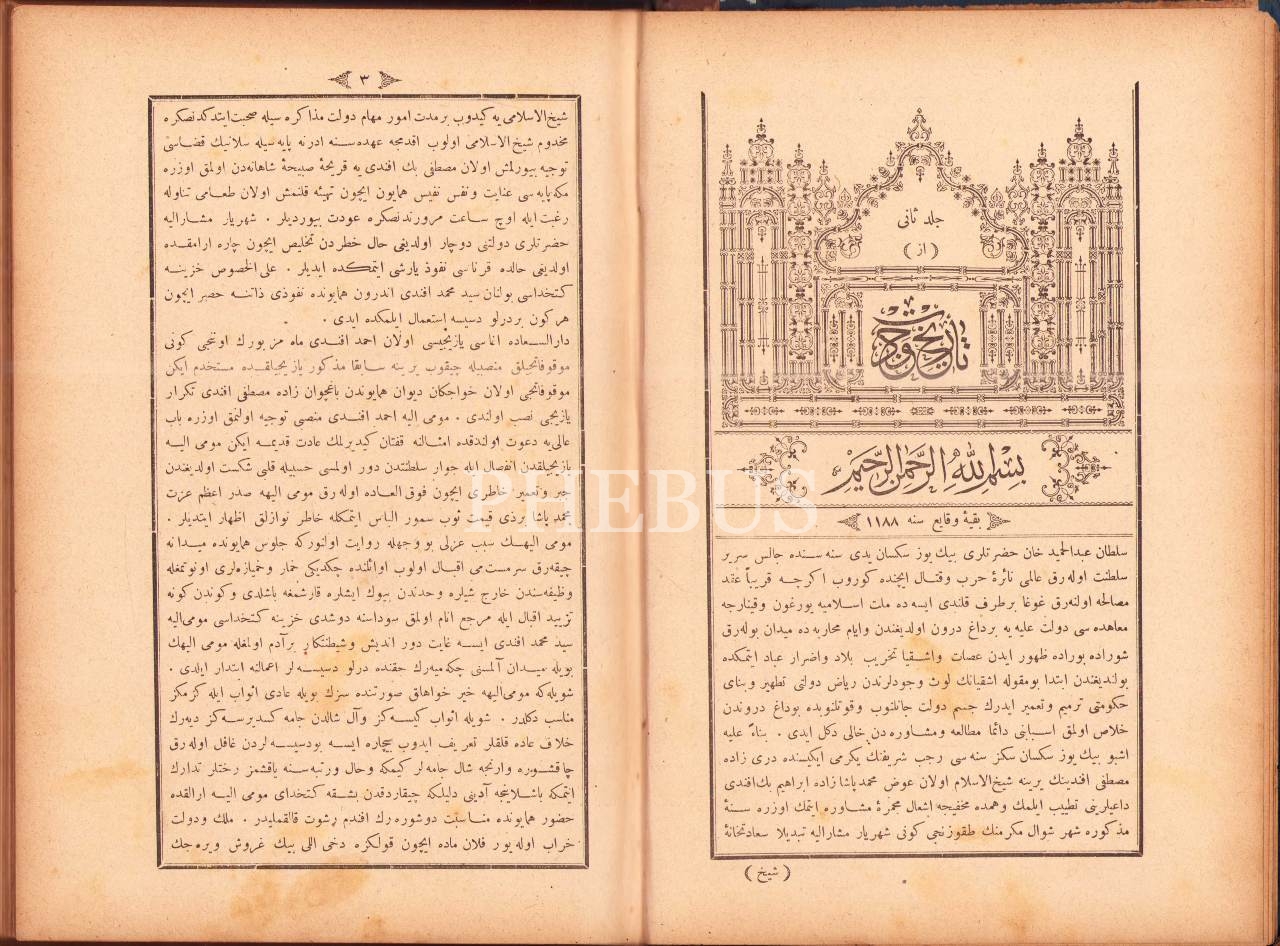 جلد ثانی
( از )
تاریخ جودت
بسم الله الرحمن الرحیم
بقیهٔ وقایع سنه ١١٨٨
سلطان عبدالحمید خان حضرتلری بیك یوز سكسان یدی سنه سنده جالس سریر
سلطنت اوله رق عالمی نائرهٔ حرب وقتال ایچنده كوروب اكرچه قریباً عقد
مصالحه اولنه رق غوغا برطرف قلندی ایسه ده ملت اسلامیه یورغون وقینارجه
معاهده سی دولت علیه یه برداغ درون اولدیغندن وایام محاربه ده میدان بوله رق
شوراده بوراده ظهور ایدن عصات واشقیا تخریب بلاد واضرار عباد ایتمكده
بولندیغندن ابتدا بومقوله اشقیانك لوث وجودلرندن ریاض دولتی تطهیر وبنای
حكومتی ترمیم وتعمیر ایدرك جسم دولت جانلنوب وقوتلنوبده بوداغ دروندن
خلاص اولمق اسبابنی دائما مطالعه ومشاوره دن خالی دكل ایدی . بناءً علیه
اشبو بیك یوز سكسان سكز سنه سی رجب شریفنك یكرمی ایكیسنده دری زاده
مصطفی افندینك یرینه شیخ الاسلام اولان عوض محمد پاشا زاده ابراهیم بك افندی
داعیلرینی تطییب ایلمك وهمده مخفیجه اشعال مجمرهٔ مشاوره ایتمك اوزره سنهٔ
مذكوره شهر شوال مكرمنك طقوزنجی كونی شهریار مشارالیه تبدیلا سعادتخانهٔ
( شیخ )
٣
شیخ الاسلامی یه كیدوب برمدت امور مهام دولت مذاكره سیله صحبت ایتدكدنصكره
مخدوم شیخ الاسلامی اولوب اقدمجه عهده سنه ادرنه پایه سیله سلانیك قضاسی
توجیه بیورلمش اولان مصطفی بك افندی یه قریحهٔ صبیحهٔ شاهانه دن اولمق اوزره
مكه پایه سی عنایت ونفس نفیس همایون ایچون تهیئه قلنمش اولان طعامی تناوله
رغبت ایله اوچ ساعت مرورندنصكره عودت بیوردیلر . شهریار مشارالیه
حضرتلری دولتنی دوچار اولدیغی حال خطردن تخلیص ایچون چاره ارامقده
اولدیغی حالده قرناسی نفوذ یارشی ایتمكده ایدیلر . علی الخصوص خزینه
كتخداسی بولنان سید محمد افندی اندرون همایونده نفوذی ذاتنه حصر ایچون
هركون بردرلو دسیسه استعمال ایلمكده ایدی .
دارالسعاده اغاسی یازیجیسی اولان احمد افندی ماه مزبورك اوننجی كونی
موقوفاتجیلق منصبیله چیقوب یرینه سابقا مذكور یازیجیلقده مستخدم ایكن
موقوفاتجی اولان خواجكان دیوان همایوندن باغچوان زاده مصطفی افندی تكرار
یازیجی نصب اولندی . مومی الیه احمد افندی منصبی توجیه اولنمق اوزره باب
عالی یه دعوت اولندقده امثالنه قفتان كیدیرلمك عادت قدیمه ایكن مومی الیه
یازیجیلقدن انفصال ایله جوار سلطنتدن دور اولمسی حسبیله قلبی شكست اولدیغندن
جبر وتعمیر خاطری ایچون فوق العاده اوله رق مومی الیهه صدر اعظم عزت
محمد پاشا برذی قیمت ثوب سمور الباس ایتمكله خاطر نوازلق اظهار ایتدیلر .
مومی الیهك سبب عزلی بووجهله روایت اولنوركه جلوس همایونده میدانه
چیقه رق سرمست می اقبال اولوب اوائلنده چكدیكی خمار وخمیازه لری اونوتمغله
وظیفه سندن خارج شیلره وحدندن بیوك ایشلره قارشمغه باشلدی وكوندن كونه
تزیید اقبال ایله مرجع انام اولمق سوداسنه دوشدی خزینه كتخداسی مومی الیه
سید محمد افندی ایسه غایت دور اندیش وشیطنتكار برآدم اولمغله مومی الیهك
بویله میدان آلمسنی چكه میه رك حقنده درلو دسیسه لر اعمالنه ابتدار ایلدی .
شویله كه مومی الیهه خیر خواهلق صورتنده سزك بویله عادی اثواب ایله كزمكز
مناسب دكلدر . شویله اثواب كیسه كز وآل شالدن جامه كسدیرسه كز دیه رك
خلاف عاده قلقلر تعریف ایدوب بیچاره ایسه بودسیسه لردن غافل اوله رق
چاقشوره وارنجه شال جامه لر كیمكه وحال ورتبه سنه یاقشمز رختلر تدارك
ایتمكه باشلاینجه آدینی دلیلكه چیقاردقدن بشقه كتخدای مومی الیه ارالقده
حضور همایونده مناسبت دوشوره رك افندم رشوت قالقمایدر . ملك ودولت
خراب اوله یور فلان ماده ایچون قولكزه دخی اللی بیك غروش ویره جك
PHEBUS